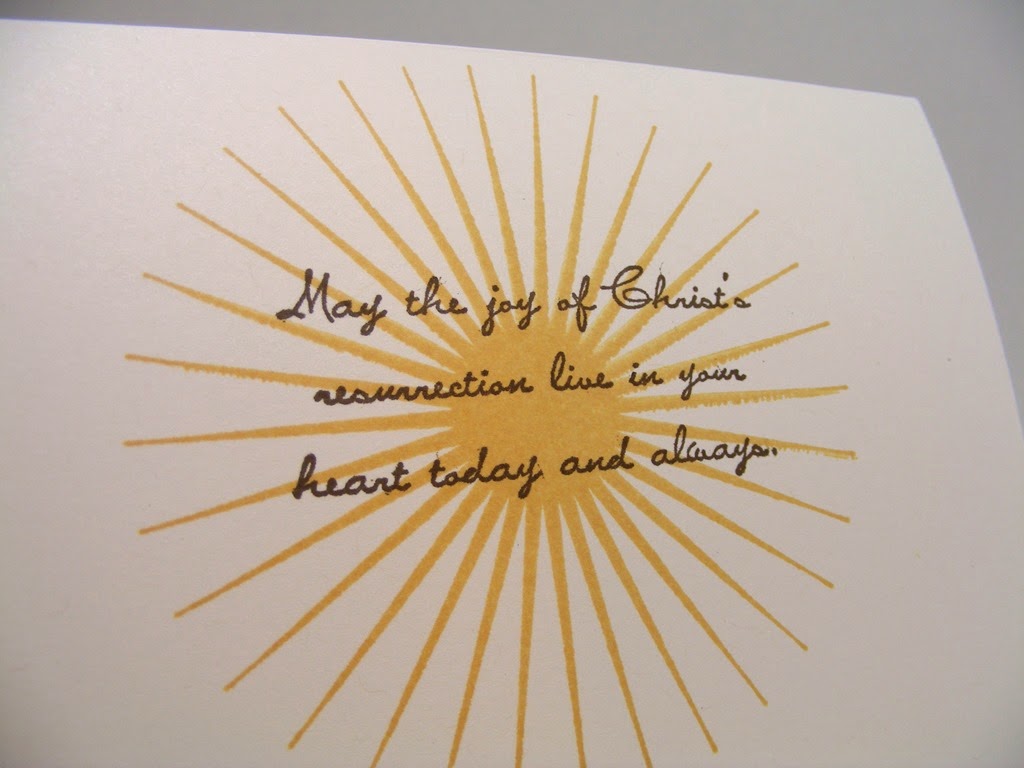 May the joy of Christ's
resurrection live in your
heart today and always.